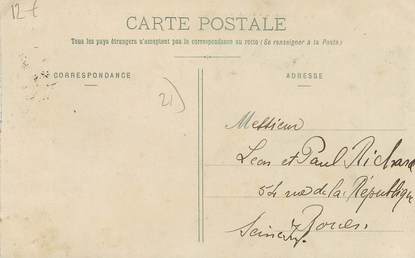 12 €
CARTE POSTALE
Tous les pays étrangers n'acceptent pas la correspondance au recto (Se renseigner à la Poste)
CORRESPONDANCE
ADRESSE
21)
Messieurs
Léon et Paul Richard
54 rue de la République
Rouen